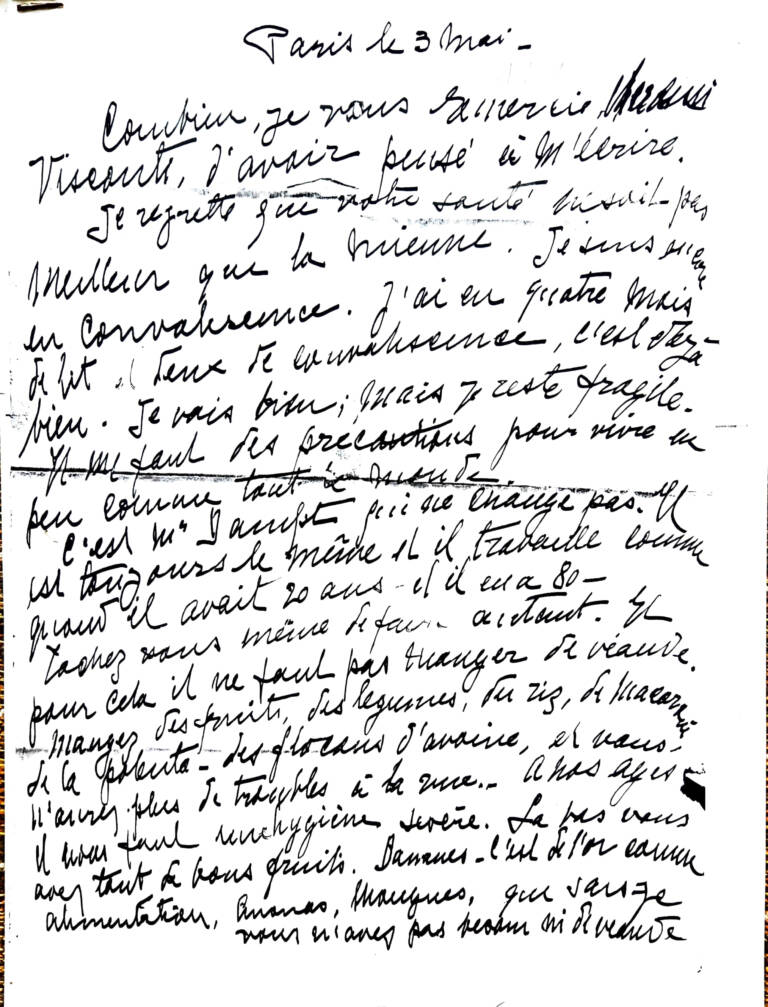 Paris le 3 Mai -
Combien, je vous remercie,
Visconti, d'avoir pensé à m'écrire.
Je regrette que votre santé ne soit pas
Meilleur que la Mienne. Je suis encore
en convalescence. J'ai eu quatre Mois
de lit et deux de convalescence, c'est déjà
bien. Je vais bien; Mais je reste fragile.
Il me faut des precautions pour vivre un
peu comme tout le monde.
C'est Mr qui ne change pas. Il
est toujours le même et il travaille comme
quand il avait 20 ans - et il en a 80 -
Tachez vous même de faire autant. Et
pour cela il ne faut pas Manger de viande.
Mangez des fruits, des legumes, du riz, de Macaroni
de la polenta - des flocons d'avoine, et vous
n'aurez plus de troubles à la vue. - A nos ages
il nous faut une hygiène sevère. La bas vous
avez tant de bons fruits. Bananes - c'est de l'or comme
alimentation, Ananas, Mangues, que sais-je
vous n'avez pas besoin ni de viande